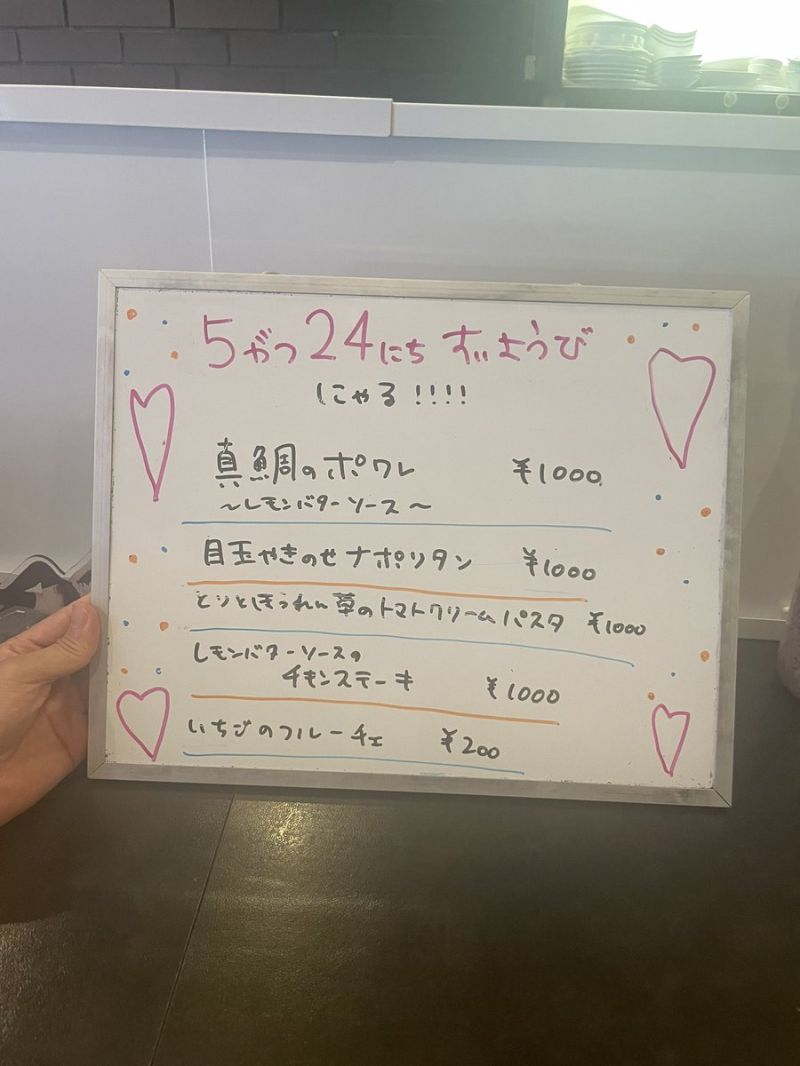 5がつ24にち すいようび
にゃる!!!!
真鯛のポワレ ¥1000
～レモンバターソース～
目玉やきのせナポリタン ¥1000
とりとほうれん草のトマトクリームパスタ ¥1000
レモンバターソースの
チキンステーキ ¥1000
いちごのフルーチェ ¥200